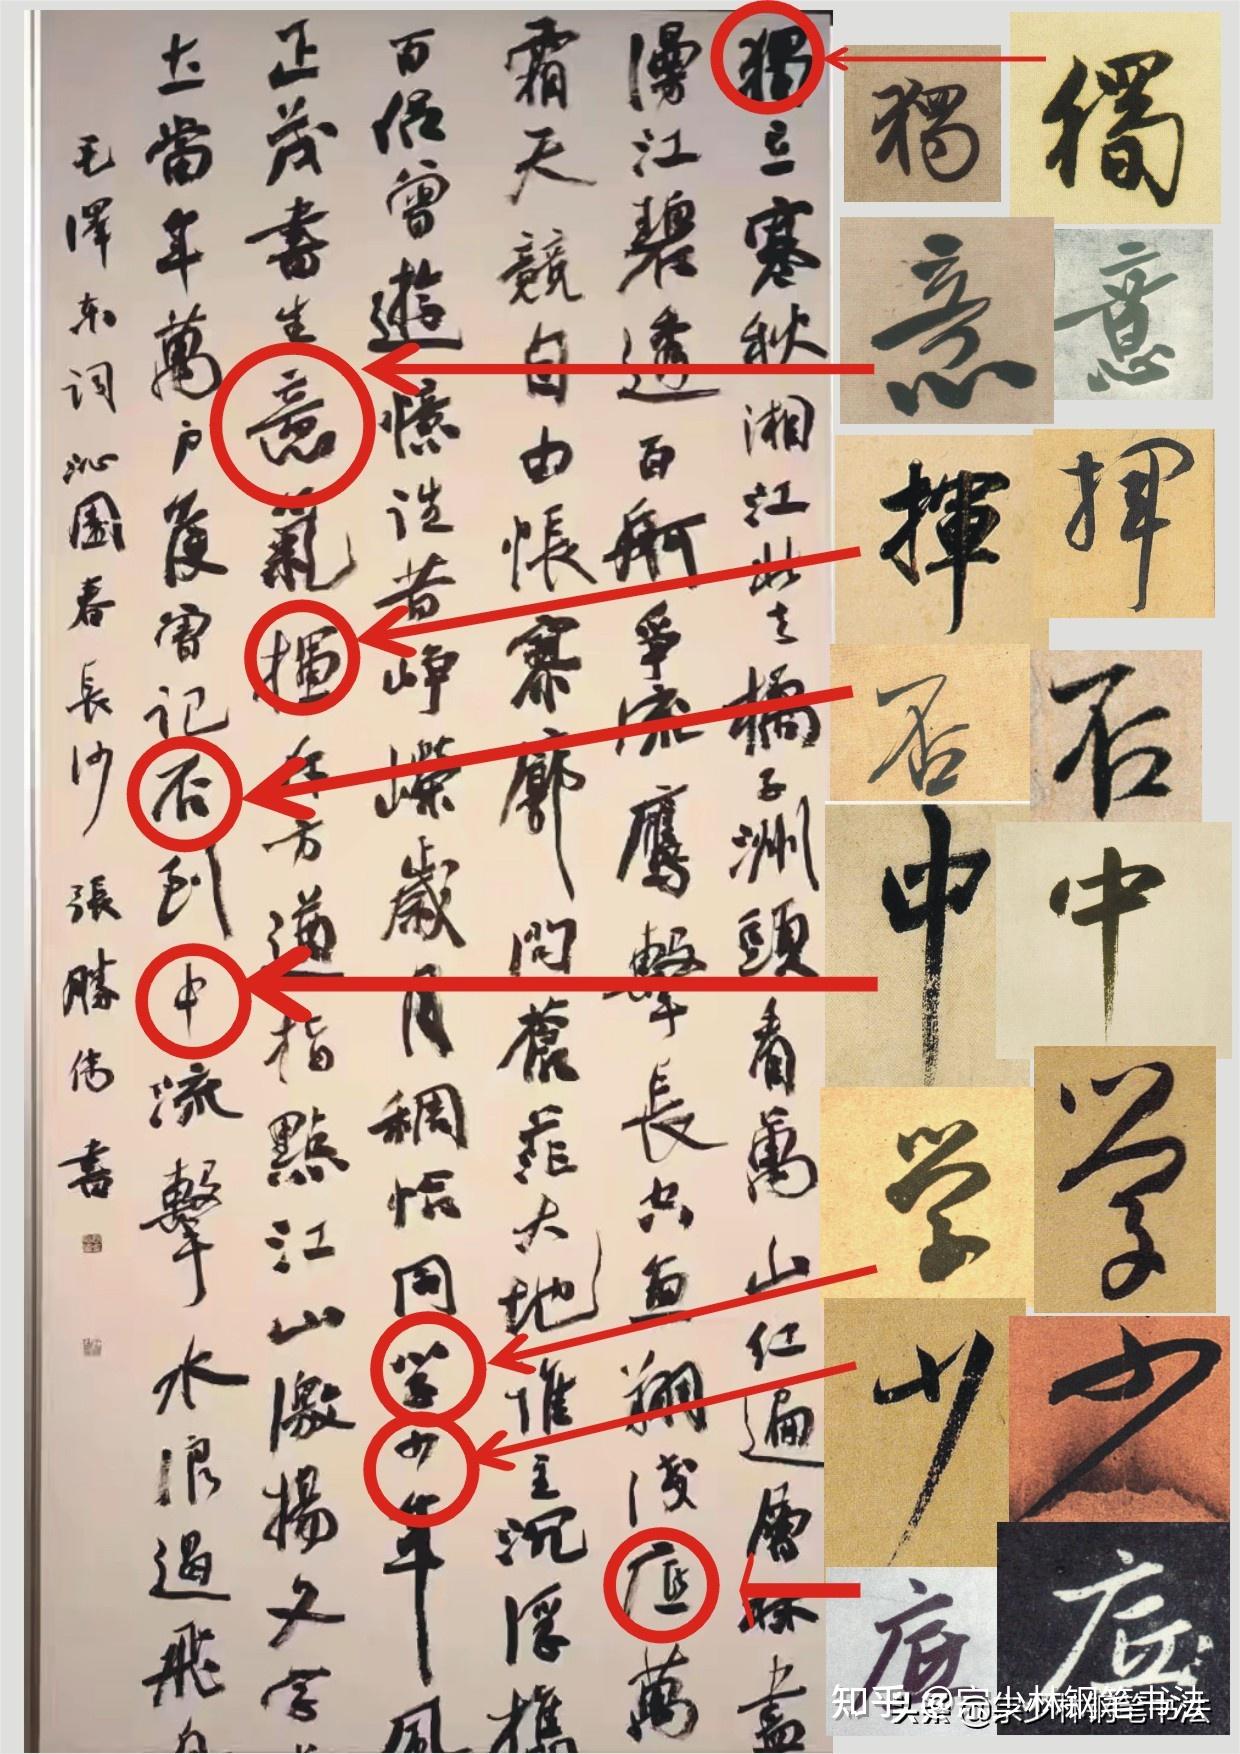 獨立寒秋湘江北去橘子洲頭看萬山紅遍層林盡
漫江碧透百舸爭流鷹擊長空魚翔淺底萬
霜天競自由悵寥廓問蒼茫大地誰主沉浮攜
百侶曾遊憶往昔崢嶸歲月稠恰同学少年風
正茂書生意氣揮斥方遒指點江山激揚文字
土當年萬戶侯曾記否到中流擊水浪遏飛
毛澤東詞沁園春長沙 張勝偉書
獨 獨
意 意
揮 揮
否 否
中 中
学 学
少 少
底 底
知乎 @宗少林钢笔书法
头条 @宗少林钢笔书法